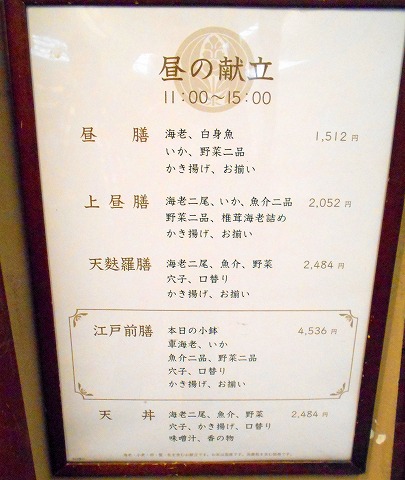 昼の献立
11:00～15:00
昼膳 海老、白身魚 1,512円
いか、野菜二品
かき揚げ、お揃い
上昼膳 海老二尾、いか、魚介二品 2,052円
野菜二品、椎茸海老詰め
かき揚げ、お揃い
天麩羅膳 海老二尾、魚介、野菜 2,484円
穴子、口替り
かき揚げ、お揃い
江戸前膳 本日の小鉢 4,536円
車海老、いか
魚介二品、野菜二品
穴子、口替り
かき揚げ、お揃い
天丼 海老二尾、魚介、野菜 2,484円
穴子、かき揚げ、口替り
味噌汁、香の物